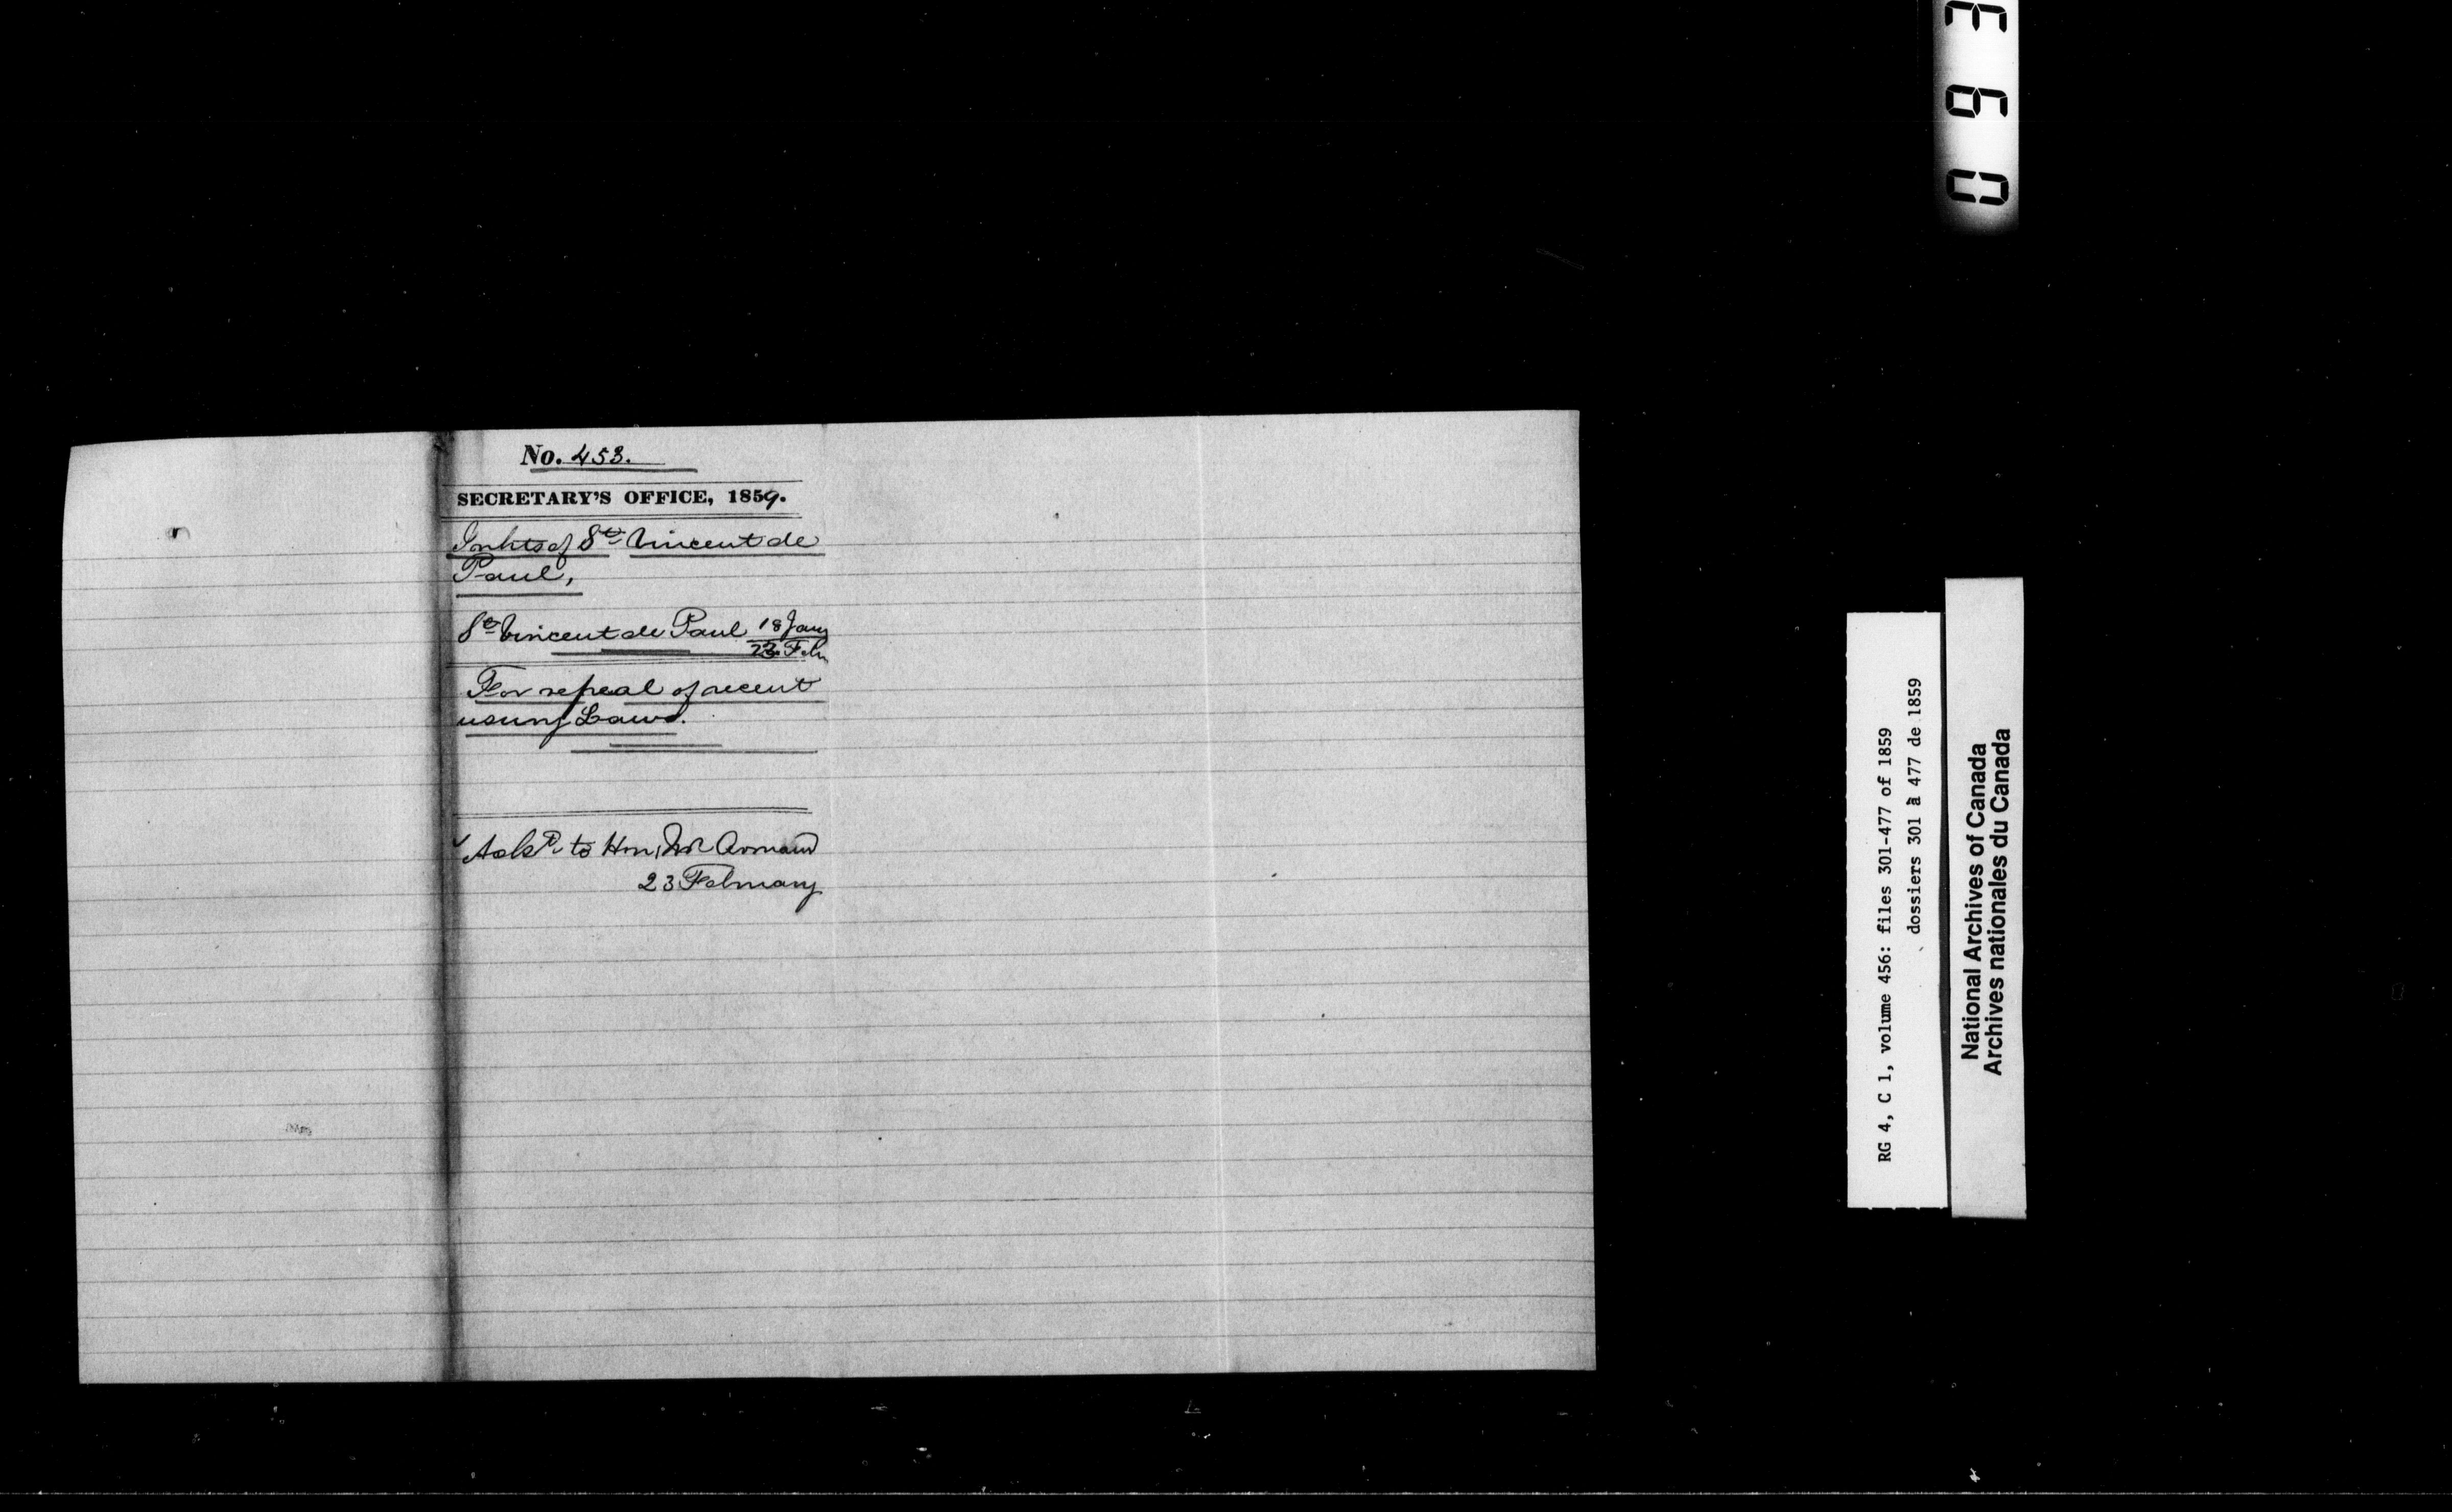 No. 453.
SECRETARY'S OFFICE, 1859.
Inhts of St Vincent de
Paul,
St Vincent de Paul 18 Jany
23 Feby
For repeal of recent
usury Laws.
Ackd to Hon. Mr Armand
23 February
RG 4, C 1, volume 456: files 301-477 of 1859
dossiers 301 à 477 de 1859
National Archives of Canada
Archives nationales du Canada
0 9 3